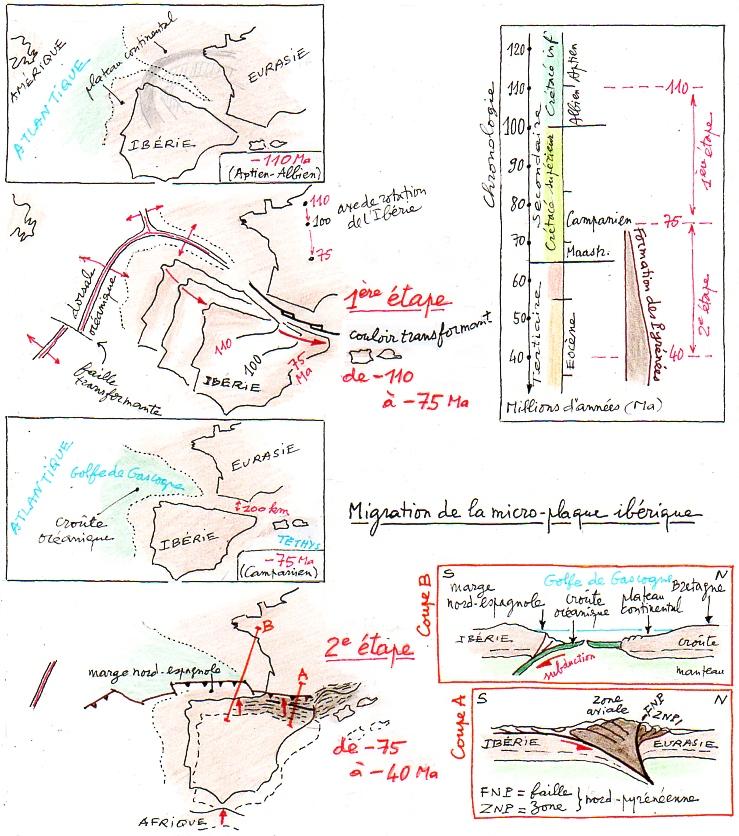 AMÉRIQUE
ATLANTIQUE
plateau continental
EURASIE
IBÉRIE
-110 Ma
(Aptien-Albien)
110
100
75
axe de rotation
de l'Ibérie
dorsale
océanique
faille
transformante
1ère étape
couloir transformant
110
100
75
Ma
IBÉRIE
de -110
à -75 Ma
ATLANTIQUE
Golfe de Gascogne
croûte
océanique
EURASIE
200 km
IBÉRIE
TÉTHYS
-75 Ma
(Campanien)
B
2e étape
A
marge nord-espagnole
de -75
à -40 Ma
AFRIQUE
Chronologie
120
110
100
90
80
70
60
50
40
Secondaire
Tertiaire
Crétacé inf
Crétacé supérieur
Eocène
Aptien
Albien
Campanien
Maash.
110
75
40
1ère étape
2e étape
Formation des Pyrénées
Millions d'années (Ma)
Migration de la micro-plaque ibérique
Coupe B
S
N
marge
nord-espagnole
Golfe de Gascogne
croûte
océanique
plateau
continental
Bretagne
IBÉRIE
croûte
subduction
manteau
Coupe A
S
N
zone
axiale
FNP
ZNP
IBÉRIE
EURASIE
FNP = faille
ZNP = zone
nord-pyrénéenne